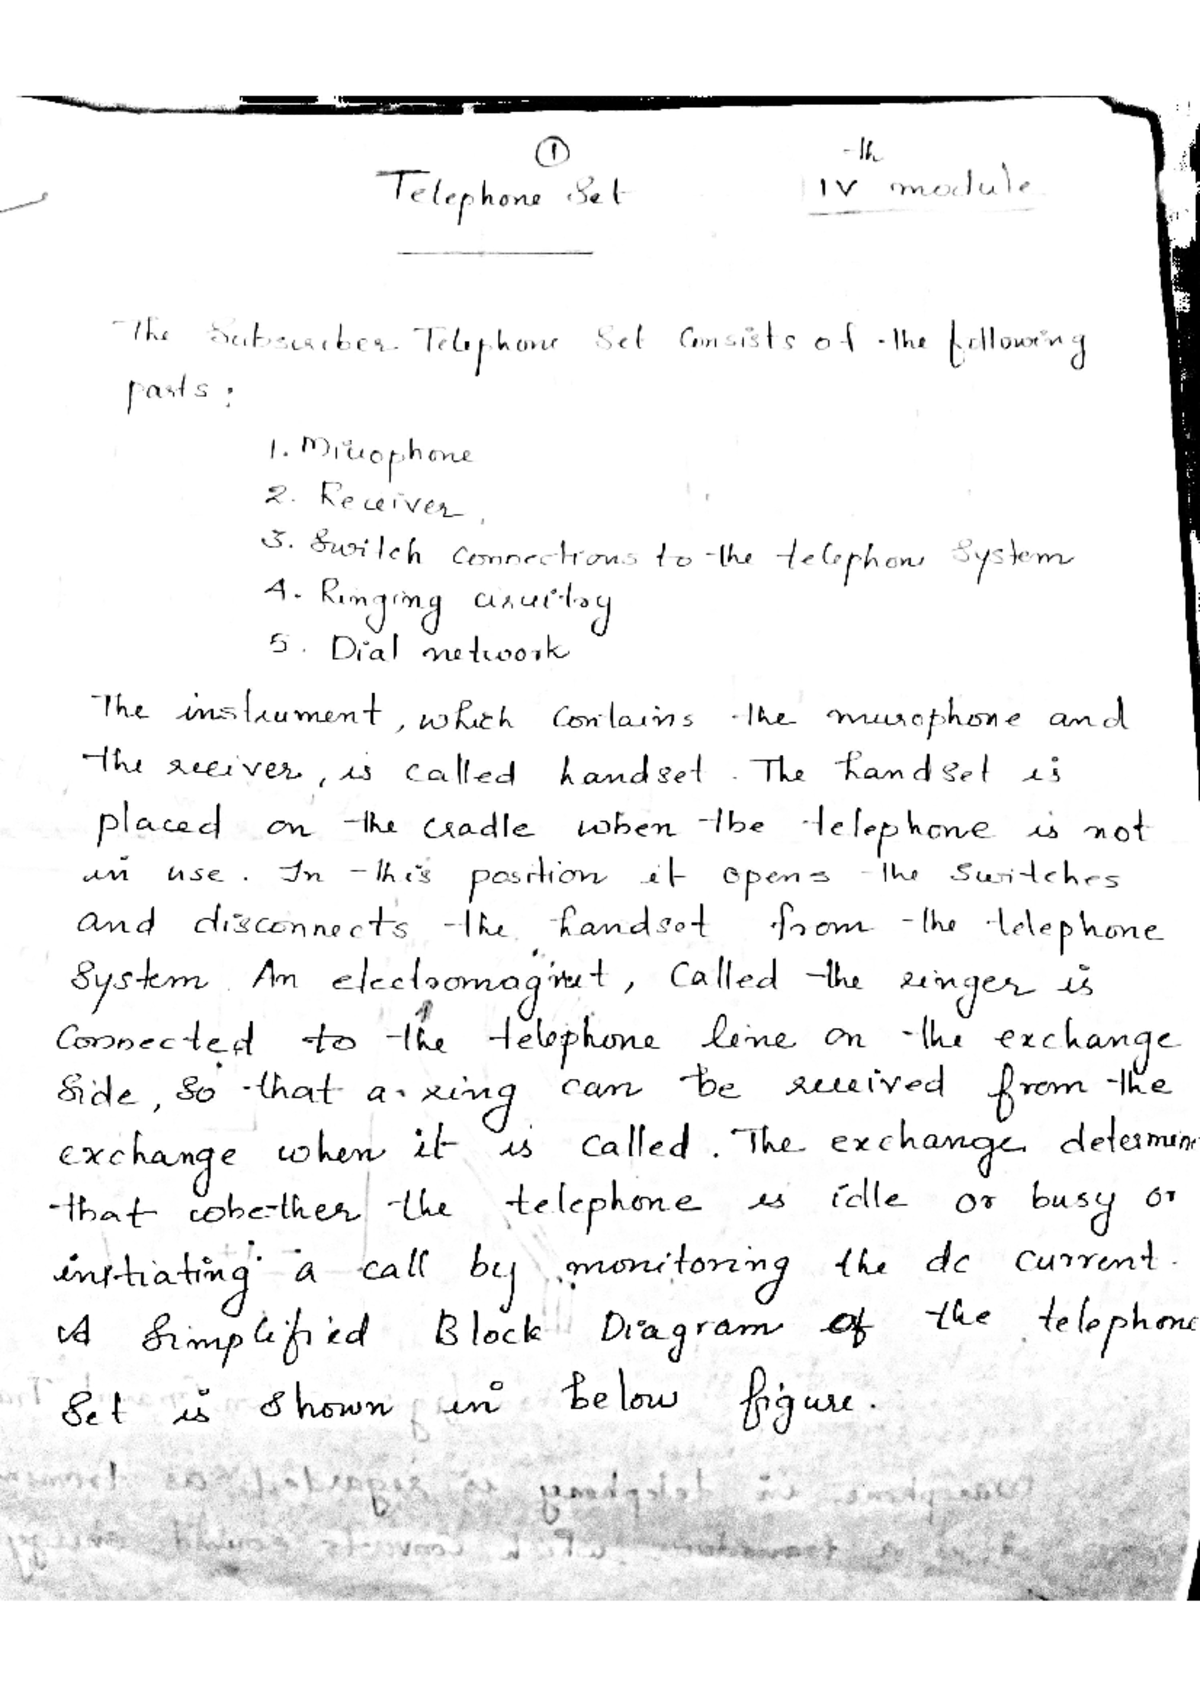 ①
Telephone Set
IVth module
The Subscriber Telephone Set Consists of the following
parts:
1. Microphone
2. Receiver
3. Switch connections to the telephone System
4. Ringing circuitry
5. Dial network
The instrument, which contains the microphone and
the receiver, is called handset. The handset is
placed on the cradle when the telephone is not
in use. In this position it opens the switches
and disconnects the handset from the telephone
System. An electromagnet, called the ringer is
Connected to the telephone line on the exchange
side, so that a ring can be received from the
exchange when it is called. The exchange determin
that whether the telephone is idle or busy or
initiating a call by monitoring the dc current.
A Simplified Block Diagram of the telephone
Set is shown in below figure.